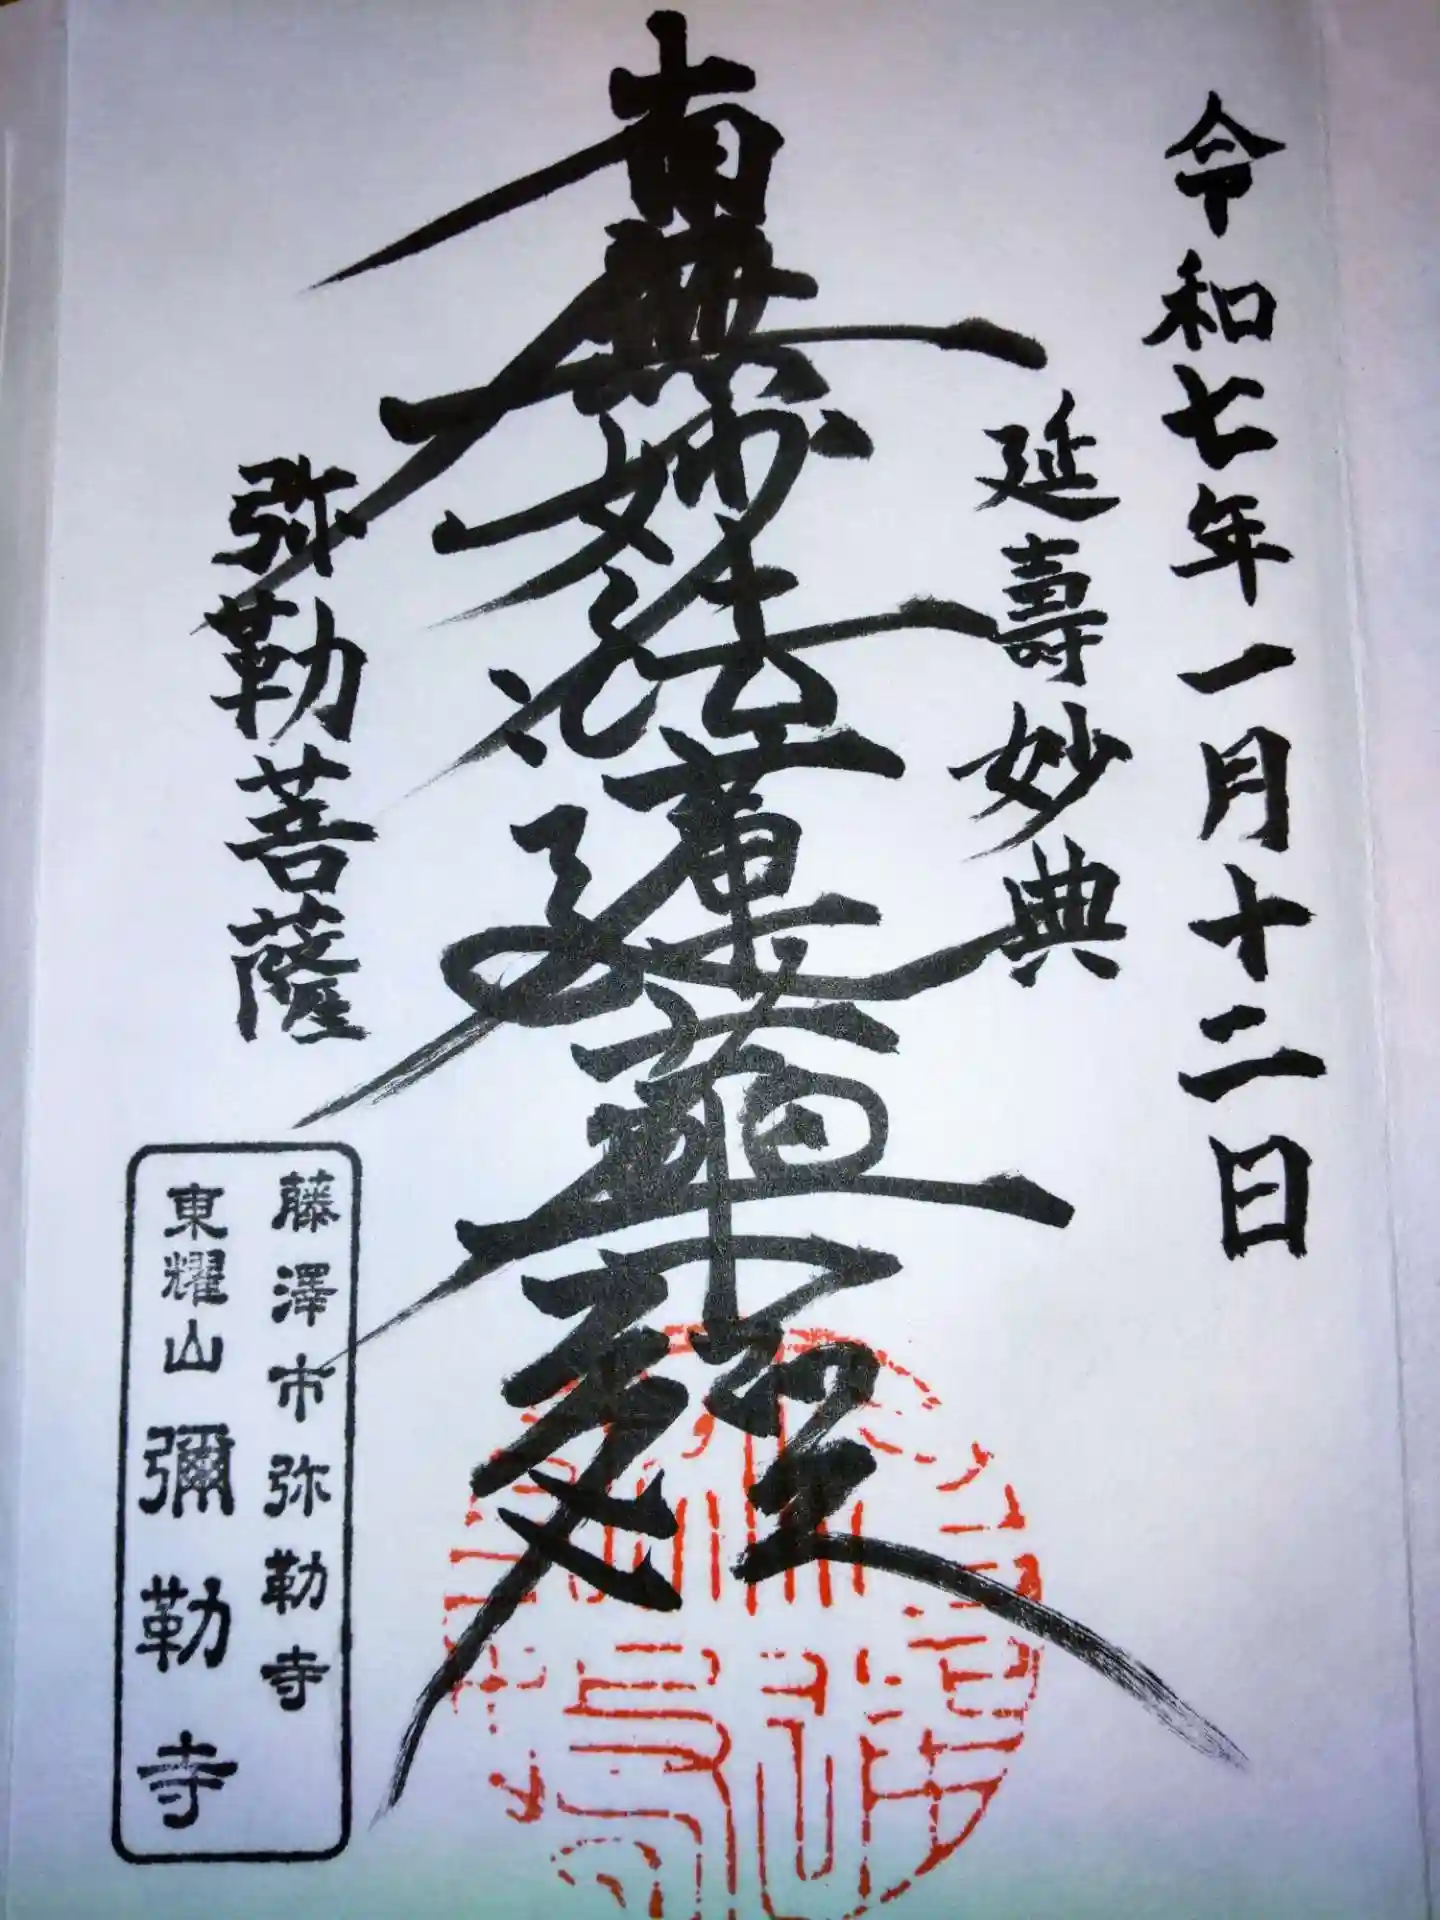 令和七年一月十二日
延壽妙典
南無妙法蓮華経
弥勒菩薩
藤澤市弥勒寺
東耀山彌勒寺